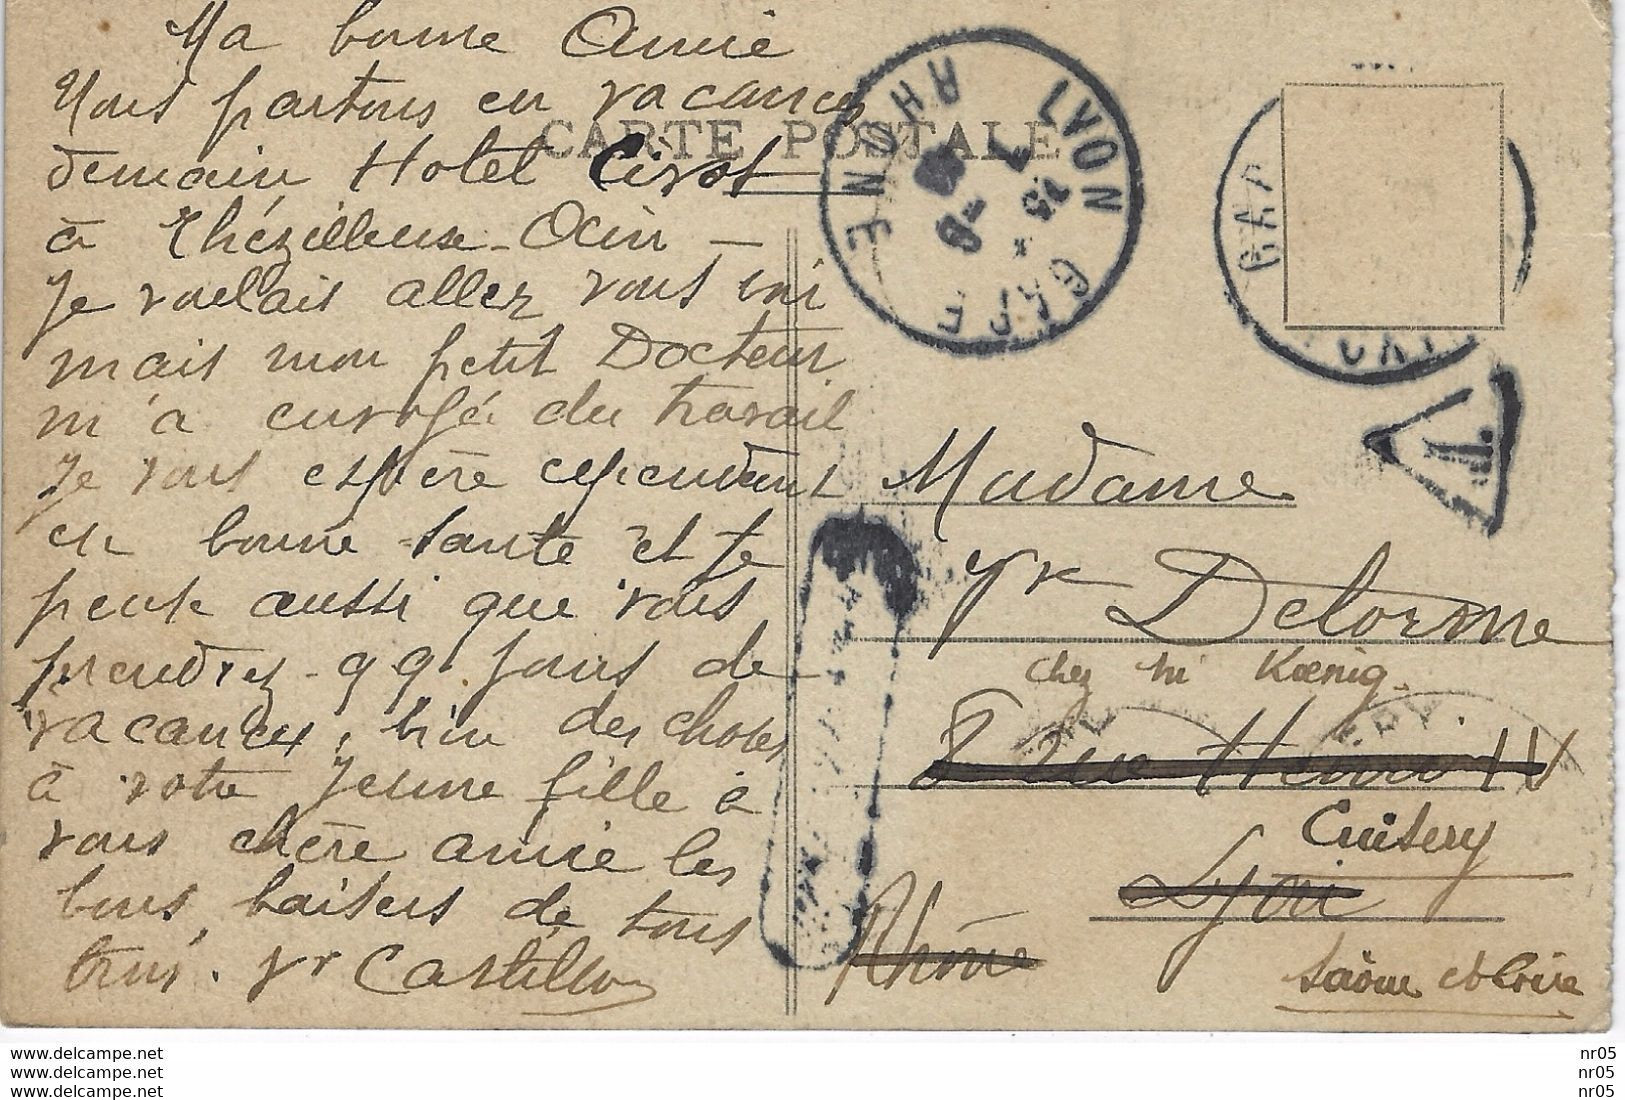 Ma bonne Amie
Nous partons en vacances
demain Hotel Cirot
à Thézillieux - Ain -
Je voulais aller vous voir
mais mon petit Docteur
m'a envoyé du travail
Je vous espère cependant
en bonne santé et je
pense aussi que vous
prendrez qq jours de
vacances, bien des choses
à votre jeune fille à
vous chère amie les
bons baisers de tous
trois. Vr Castillon
CARTE POSTALE
LYON GARE
RHONE
T
Madame
Vve Delorme
chez Mr Kœnig.
8 rue Henri IV
Cuisery
Lyon
Rhône
Saône et Loire
www.delcampe.net
www.delcampe.net
www.delcampe.net
nr05
nr05
nr05